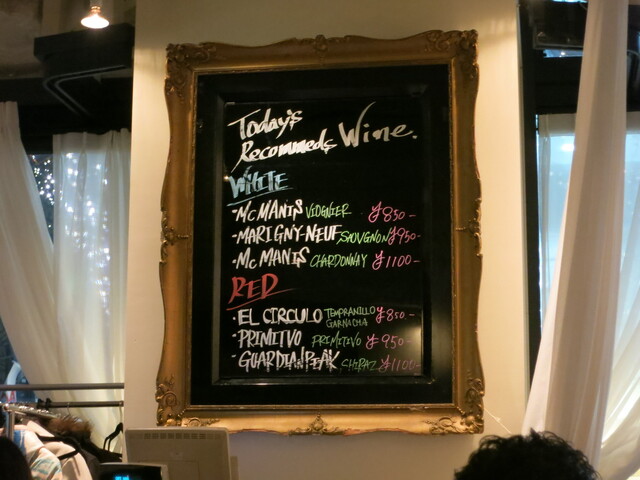 Today's
Recommeds Wine.
WHITE
・McMANIS VIOGNIER ¥850-
・MARIGNY-NEUF SAUVGNON ¥950-
・McMANIS CHARDONNAY ¥1100-
RED
・EL CIRCULO TEMPRANILLO GARNACHA ¥850-
・PRIMITVO PRIMITIVO ¥950-
・GUARDIANPEAK SHIRAZ ¥1100-